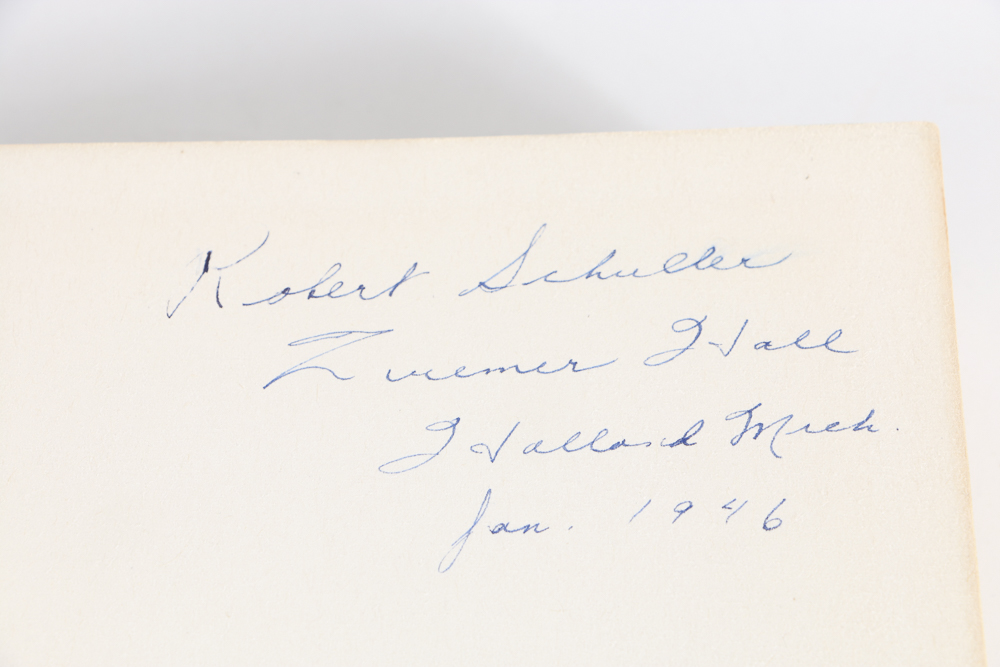 Robert Schuller
Zwemer Hall
Holland Mich.
Jan. 1946